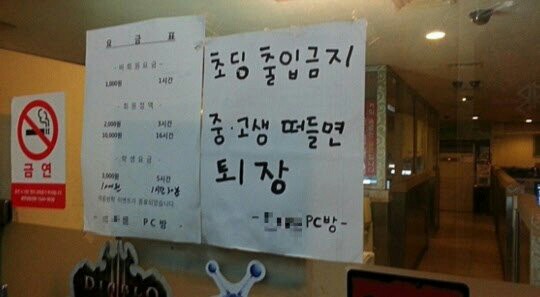 요 금 표
- 비회원요금 -
1,000원 1시간
- 회원정액 -
2,000원 3시간
10,000원 16시간
- 학생요금 -
3,000원 5시간
PC방
초딩 출입금지
중·고생 떠들면
퇴장
PC방 -
금연
DIABLO